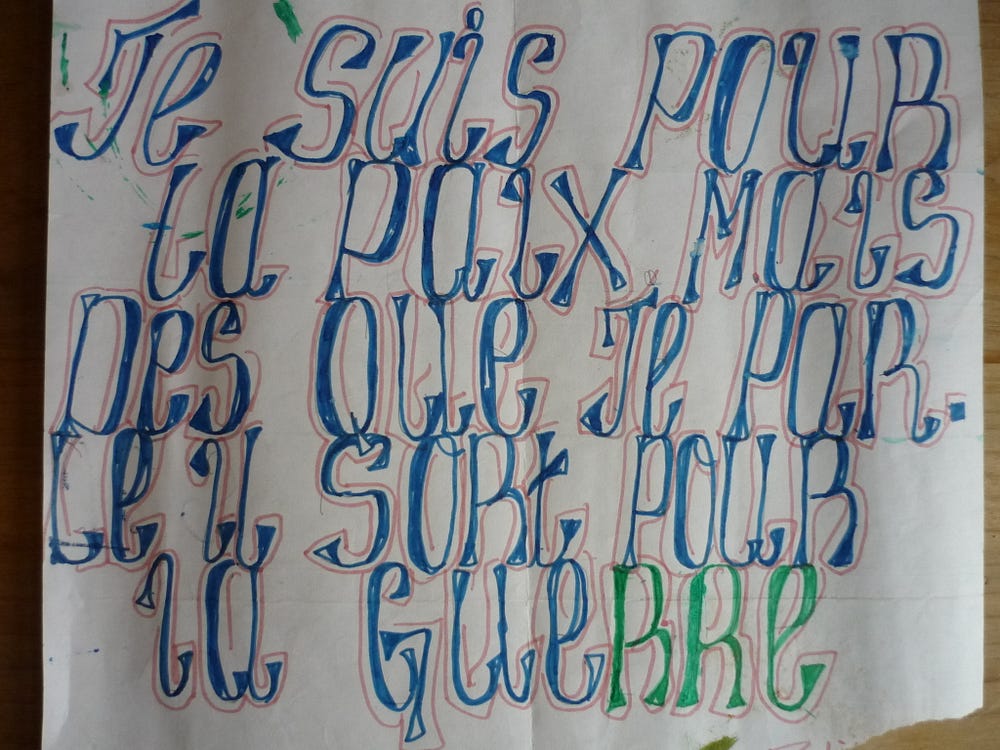 Je suis pour
la paix mais
Des que Je par.
Le il sort pour
la GueRRe